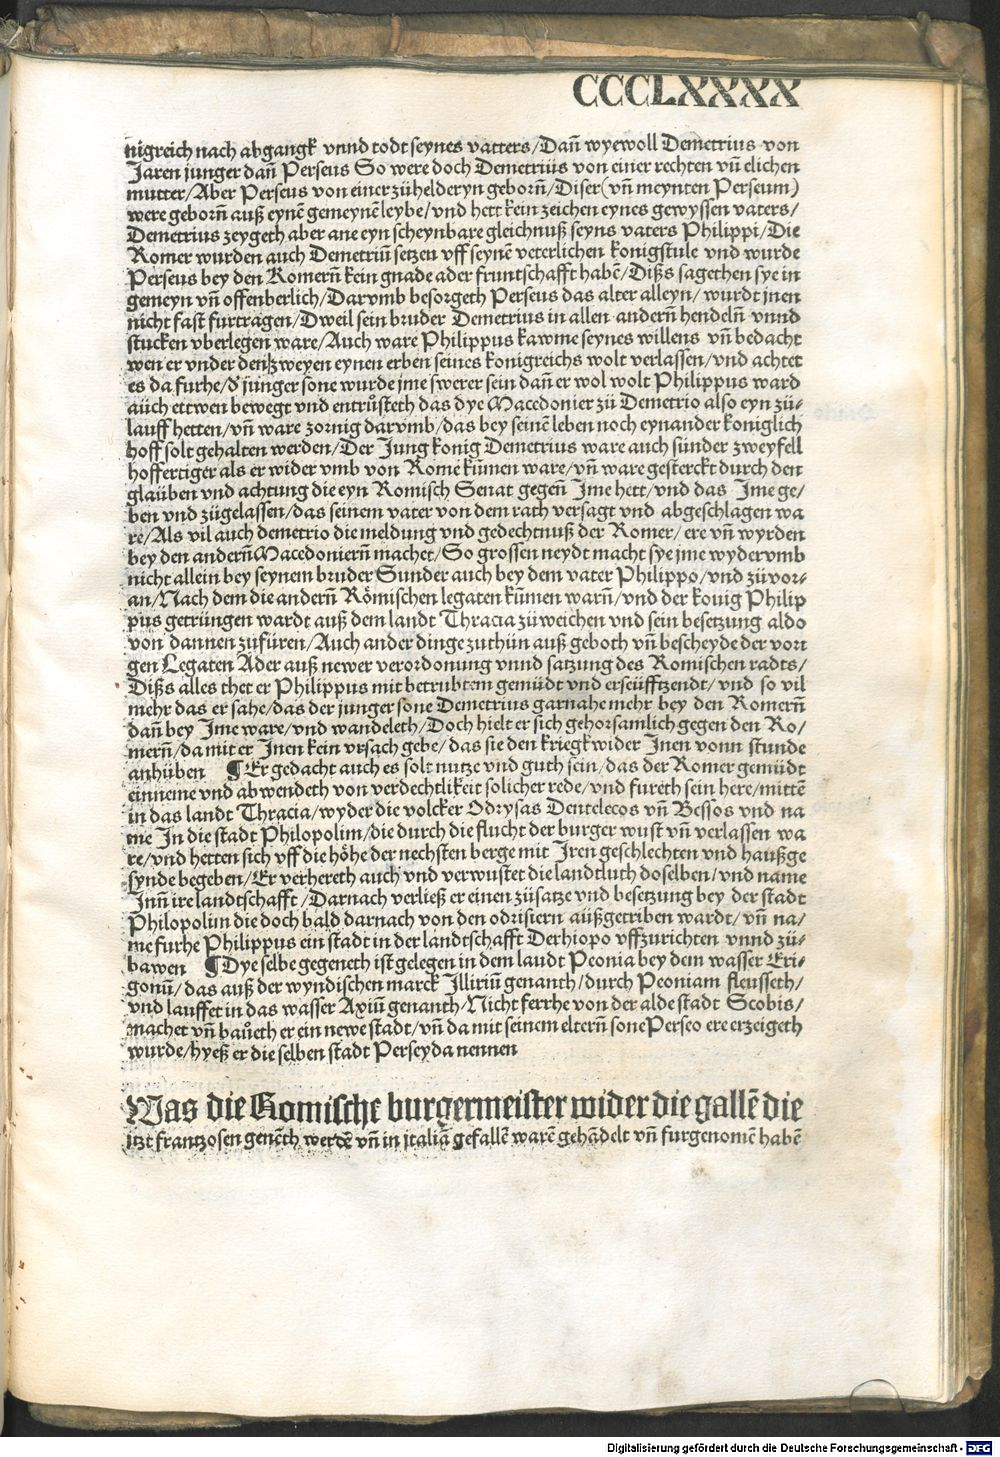 CCCCLXXXX
nigreich nach abgangk vnnd todt seynes vatters/Dañ wyewoll Demetrius von
Jaren junger dañ Perseus So were doch Demetrius von einer rechten vñ elichen
mutter/Aber Perseus von einer zühelderyn geborñ/Diser(vñ meynten Perseum)
were geborñ auß eynẽ gemeynẽ leybe/vnd hett kein zeichen eynes gewyssen vaters/
Demetrius zeygeth aber ane eyn scheynbare gleichnuß seyns vaters Philippi/Die
Romer wurden auch Demetriũ setzen vff seynẽ veterlichen konigstule vnd wurde
Perseus bey den Romerñ kein gnade ader fruntschafft habẽ/Dißs sagethen sye in
gemeyn vñ offenberlich/Darvmb besorgeth Perseus das alter alleyn/wurdt jnen
nicht fast furtragen/Dweil sein bruder Demetrius in allen anderñ hendelñ vnnd
stucken vberlegen ware/Auch ware Philippus kawme seynes willens vñ bedacht
wen er vnder denßzweyen eynen erben seines konigreichs wolt verlassen/vnd achtet
es da furhe/d' junger sone wurde jme swerer sein dañ er wol wolt Philippus ward
aüch ettwen bewegt vnd entrůsteth das dye Macedonier zü Demetrio also eyn zü-
lauff hetten/vñ ware zornig darvmb/das bey seinẽ leben noch eynander koniglich
hoff solt gehalten werden/Der Jung konig Demetrius ware auch sünder zweyfell
hoffertiger als er wider vmb von Rome kũmen ware/vñ ware gesterckt durch den
glaüben vnd achtung die eyn Romisch Senat gegeñ Jme hett/vnd das Jme ge-
ben vnd zügelassen/das seinem vater von dem rath versagt vnd abgeschlagen wa
re/Als vil auch demetrio die meldung vnd gedechtnuß der Romer/ere vñ wyrden
bey den anderñ Macedonierñ machet/So grossen neydt macht sye jme wydervmb
nicht allein bey seynem bruder Sunder auch bey dem vater Philippo/vnd züvor-
an/Nach dem die anderñ Römischen legaten kũmen warñ/vnd der kouig Philip
pus getrüngen wardt auß dem landt Thracia zü weichen vnd sein besetzung aldo
von dannen zufüren/Auch ander dinge zuthün auß geboth vñ bescheyde der vort
gen Legaten Ader auß newer verordonung vnnd satzung des Romischen radts/
Dißs alles thet er Philippus mit betrubtem gemüdt vnd erseüfftzendt/vnd so vil
mehr das er sahe/das der junger sone Demetrius gar nahe mehr bey den Romerñ
dañ bey Jme ware/vnd wandeleth/Doch hielt er sich gehorsamlich gegen den Ro-
merñ/da mit er Jnen kein vrsach gebe/das sie den kriegk wider Jnen vonn stunde
anhüben ¶Er gedacht auch es solt nutze vnd guth sein/das der Romer gemüdt
einneme vnd abwendeth von verdechtlikeit solicher rede/vnd fureth sein here/mittẽ
in das landt Thracia/wyder die volcker Odrysas Dentelecos vñ Bessos vnd na
me Jn die stadt Philopolim/die durch die flucht der burger wust vñ verlassen wa
re/vnd hetten sich vff die höhe der nechsten berge mit Jren geschlechten vnd haußge
synde begeben/Er verhereth auch vnd verwustet die landtluth doselben/vnd name
Jnñ ire landtschafft/Darnach verließ er einen züsatze vnd besetzung bey der stadt
Philopolim die doch bald darnach von den odrisiern aüßgetriben wardt/vñ na-
me furhe Philippus ein stadt in der landtschafft Derhiopo vffzurichten vnnd zü-
bawen ¶Dye selbe gegeneth ist gelegen in dem laudt Peonia bey dem wasser Eri-
gonũ/das auß der wyndischen marck Jlliriũ genanth/durch Peoniam fleusseth/
vnd lauffet in das wasser Axiũ genanth/Nicht ferrhe von der alde stadt Scobis/
machet vñ baůeth er ein newe stadt/vñ da mit seinem elterñ sone Perseo ere erzeigeth
wurde/hyeß er die selben stadt Perseyda nennen
Was die Romische burgermeister wider die gallẽ die
itzt frantzosen genẽth werdẽ vñ in jtaliã gefallẽ warẽ gehãdelt vñ furgenomẽ habẽ
Digitalisierung gefördert durch die Deutsche Forschungsgemeinschaft - DFG